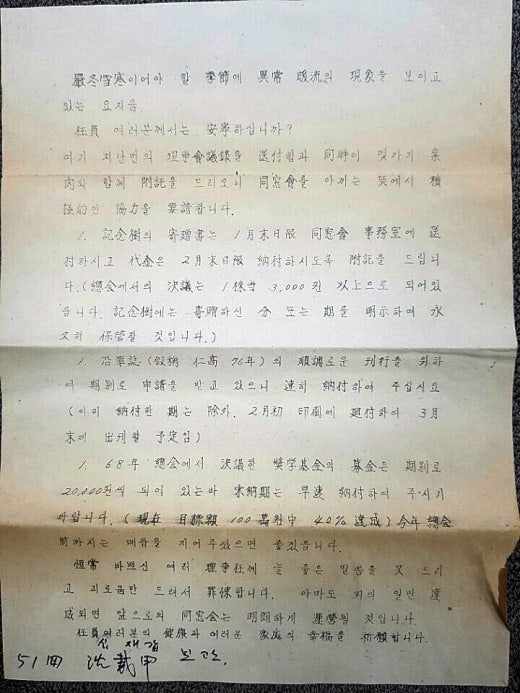 嚴冬雪寒이어야 할 季節에 異常 暖流의 現象을 보이고
있는 요지음
任員 여러분께서는 安寧하십니까?
여기 지난번의 理事會議錄을 送付함과 同時에 몇가지 案
內와 함께 附託을 드리오니 同窓會를 아끼는 뜻에서 積
極的인 協力을 要請합니다.
1. 記念樹의 寄贈書는 1月末日限 同窓會 事務室에 送
付하시고 代金은 2月末日限 納付하시도록 附託을 드립니
다.(總會에서의 決議는 1株当 3,000원 以上으로 되어있
읍니다. 記念樹에는 寄贈하신 分 또는 期를 明示하여 永
久히 保管할 것입니다.)
1. 沿革誌(假稱 仁高 76年)의 順調로운 刊行을 위하
여 期別로 申請을 받고 있으니 速히 納付하여 주십시요
(이미 納付한 期는 除外. 2月初 印刷에 廻付하여 3月
末에 出刊할 予定임)
1. 68年 總会에서 決議한 奬学基金의 募金은 期別로
20,000원씩 되어 있는바 未納期는 早速 納付하여 주시기
바랍니다.(現在 目標額 100萬원中 40% 達成)今年 總会
前까지는 매듭을 지어주셨으면 좋겠읍니다.
恒常 바쁘신 여러 理事任에 늘 좋은 말씀을 못 드리
고 괴로움만 드려서 罪悚합니다. 아마도 回의 일만 達
成되면 앞으로의 同窓会는 明朗하게 運營될 것입니다.
任員여러분의 健康과 여러분 家庭의 幸福을 祈願합니다.
심 재갑
51回 沈載甲 보고드